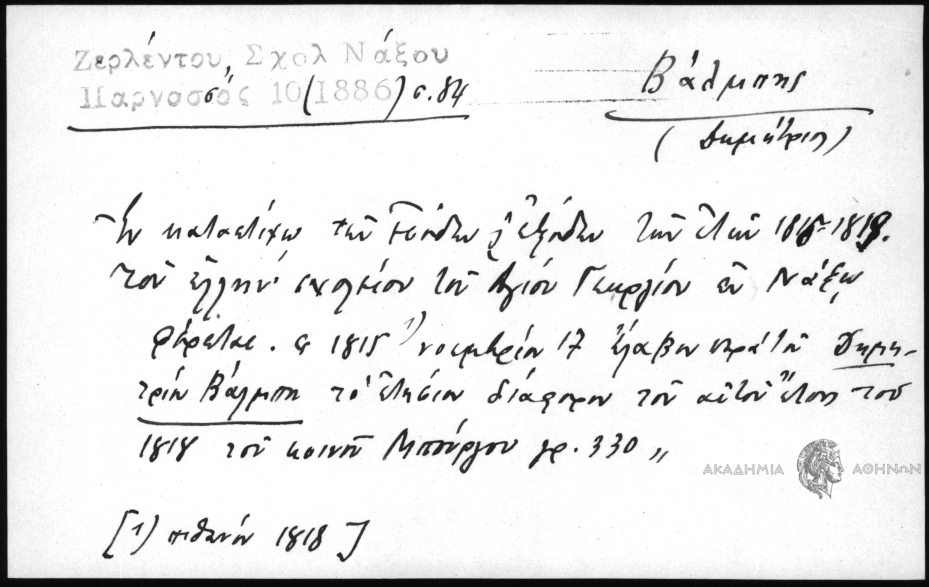 Ζερλέντου, Σχολ Νάξου
Παρνασσός 10 (1886) σ. 84
Βάλμπης
(Δημήτριος)
Ἐν καταστίχῳ τῶν ἐσόδων ἐξόδων τῶν ἐτῶν 1815-1819.
τοῦ ἑλλην. σχολείου τοῦ Ἁγίου Γεωργίου ἐν Νάξῳ
φέρεται. 1815 1) νοεμβρίου 17 ἔλαβον παρὰ τοῦ Δημη-
τρίου Βάλμπη τὸ ἐτήσιον διάφορον τοῦ αὐτοῦ ἔτους τοῦ
1818 τοῦ κοινοῦ Μπούργου γρ. 330 "
ΑΚΑΔΗΜΙΑ ΑΘΗΝΩΝ
[1) πιθανόν 1818]